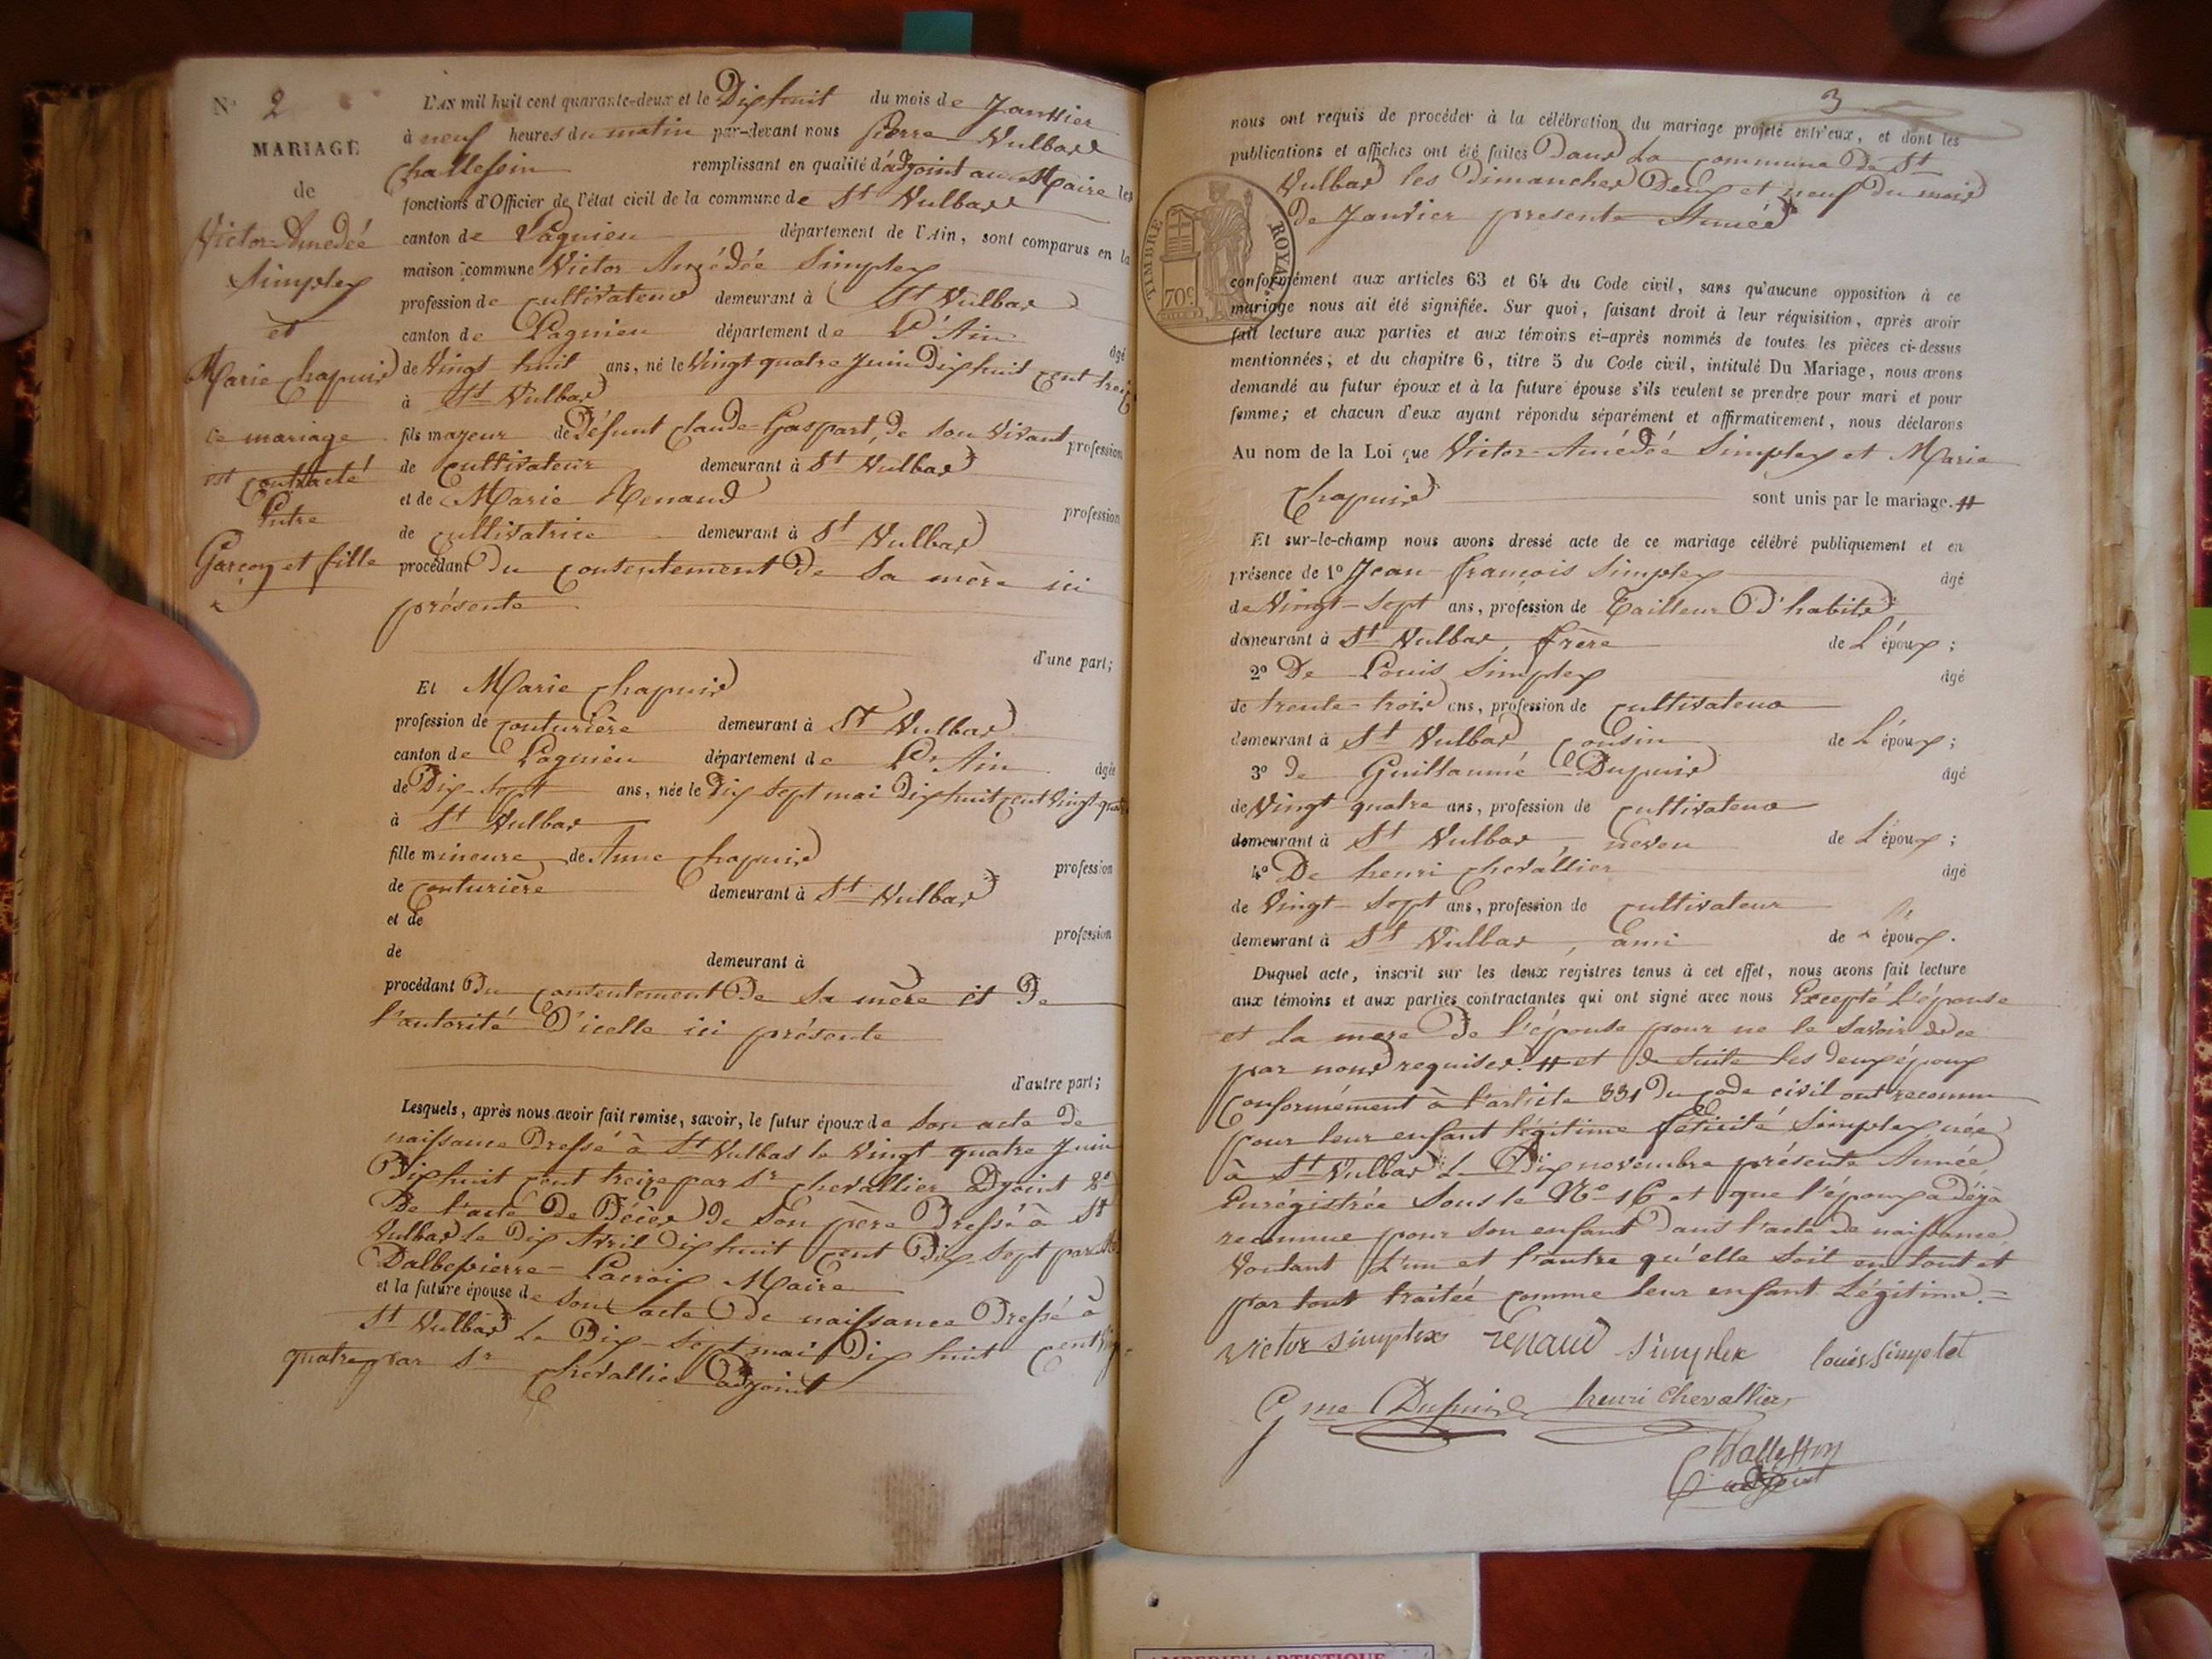 N° 2
MARIAGE
de
Victor-Amédée
Simplex
et
Marie Chapuis
ce mariage
est contracté
Entre
Garçon et fille
L'AN mil huit cent quarante-deux et le Dix huit du mois de Janvier
à neuf heures du matin par-devant nous Pierre Vulbas
Challessin remplissant en qualité d'adjoint au Maire les
fonctions d'Officier de l'état civil de la commune de St Vulbas
canton de Lagnieu département de l'Ain, sont comparus en la
maison commune Victor Amédée Simplex
profession de cultivateur demeurant à St Vulbas
canton de Lagnieu département de L'Ain âgé
de Vingt huit ans, né le Vingt quatre Juin Dix huit cent treize
à St Vulbas
fils majeur de Défunt Claude-Gaspart, de son Vivant profession
de cultivateur demeurant à St Vulbas
et de Marie Renaud profession
de cultivatrice demeurant à St Vulbas
procédant Du contentement De Sa mère ici
présente
d'une part;
Et Marie Chapuis
profession de couturière demeurant à St Vulbas
canton de Lagnieu département de L'Ain âgée
de Dix-Sept ans, née le Dix Sept mai Dix huit cent Vingt quatre
à St Vulbas
fille mineure de Anne Chapuis profession
de couturière demeurant à St Vulbas
et de profession
de demeurant à
procédant Du contentement De Sa mère et De
l'autorité D'icelle ici présente
d'autre part;
Lesquels, après nous avoir fait remise, savoir, le futur époux de Son acte de
naissance Dressé à St Vulbas le Vingt quatre Juin
Dix huit cent treize par Sr Chevallier adjoint 2°
De l'acte De Décès De Son père Dressé à St
Vulbas Le Dix Avril Dix huit Cent Dix-Sept par
Dalbepierre-Lacroix Maire
et la future épouse de Son acte De naissance Dressé à
St Vulbas Le Dix-Sept mai Dix huit Cent Vingt
quatre par Sr Chevallier adjoint
3
nous ont requis de procéder à la célébration du mariage projeté entr'eux, et dont les
publications et affiches ont été faites Dans La Commune De St
Vulbas les Dimanches Deux et neuf Du mois
De Janvier presente Année
TIMBRE ROYAL
70c
conformément aux articles 63 et 64 du Code civil, sans qu'aucune opposition à ce
mariage nous ait été signifiée. Sur quoi, faisant droit à leur réquisition, après avoir
fait lecture aux parties et aux témoins ci-après nommés de toutes les pièces ci-dessus
mentionnées; et du chapitre 6, titre 5 du Code civil, intitulé Du Mariage, nous avons
demandé au futur époux et à la future épouse s'ils veulent se prendre pour mari et pour
femme; et chacun d'eux ayant répondu séparément et affirmativement, nous déclarons
Au nom de la Loi que Victor-Amédée Simplex et Marie
Chapuis sont unis par le mariage. #
Et sur-le-champ nous avons dressé acte de ce mariage célébré publiquement et en
présence de 1° Jean-françois Simplex âgé
de Vingt-Sept ans, profession de Tailleur D'habits
demeurant à St Vulbas, frère de L'époux;
2° De Louis Simplex âgé
de trente-trois ans, profession de cultivateur
demeurant à St Vulbas cousin de L'époux;
3° de Guillaume Dupuis âgé
de Vingt quatre ans, profession de cultivateur
demeurant à St Vulbas, neveu de L'époux;
4° De henri Chevallier âgé
de Vingt-Sept ans, profession de cultivateur
demeurant à St Vulbas, ami de L'époux.
Duquel acte, inscrit sur les deux registres tenus à cet effet, nous avons fait lecture
aux témoins et aux parties contractantes qui ont signé avec nous Excepté L'épouse
et La mère De l'épouse pour ne le Savoir de ce
par nous requises. # et de Suite les deux époux
Conformément à l'article 331 Du code civil ont reconnu
pour leur enfant légitime félicité Simplex née
à St Vulbas Le Dix novembre présente Année
Enrégistrée Sous le N° 16 et que l'époux a Déjà
reconnue pour son enfant Dans l'acte de naissance,
Voulant L'un et l'autre qu'elle Soit en tout et
par tout traitée comme leur enfant Légitime.=
victor simplex renaud simplex louis Simplet
Gme Dupuis henri chevallier
Challessin
adjoint
AMBERIEU ARTISTIQUE